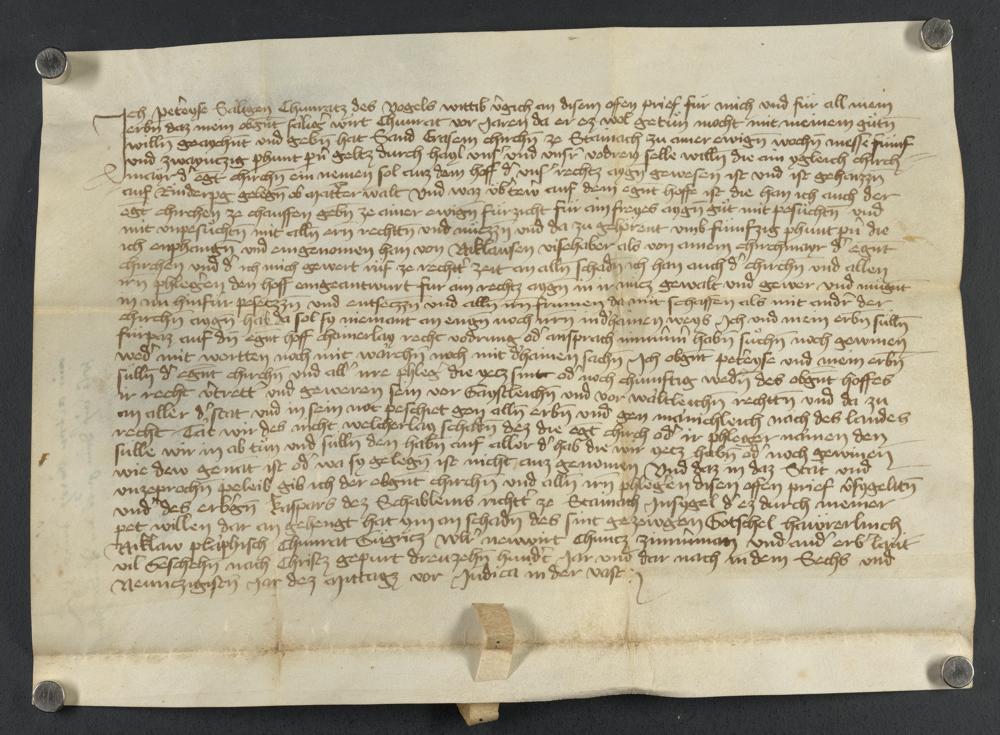 Ich petreyse Saligen Chunratz des Vogels wittib vergich an disem ofen prief für mich und für all mein
erbn daz mein obgnt selig wirt Chunrat vor Jaren da er ez wol getun mocht mit meinem gutn
willn geaychnt und gebn hat Sand Erasem chirchn ze Stainach zu ainer ewign wochn messe fünf
und zwayntzig phunt pn geltz durch hayl uns und unsr vodren selle willn die ain ygleich chirch
mayr d egt chirchn ein nemen sol auz dem hoff d uns rechtz aygn gewesen ist und ist gehaizzn
auf Rinderpg gelegn ob Matrer walt Und waz ubrtew auf dem egnt hoffe ist die han ich auch der
egt chirchen ze chauffen gebn ze ainer ewign fürzicht für ain freyes aygn gut mit pesuchtn und
mit unpesuchtn mit alln ern rechtn und nuczn und da zu gehorent umb fünfzig phunt pn die
ich enphangn und eingenomen han von Niklausen vischaber als von ainem chirchmayr d egnt
chirchen und d ich mich gewert rüf ze rechtr zeit an alln schadn ich han auch d chirchn und allen
irn phlegern den hoff eingeantwurt für ain rechtz aygn in ir nucz gewalt und gewer und mugnt
in nu hinfür pesetzzn und entseczzn und alln irn frumen da mit schaffen als mit andr der
chirchn aygn hab da sol sy niemant an engn noch irrn in dhainen weys Ich und mein erbn sulln
fürpaz auf dn egnt hoff chainerlay recht vodrung od ansprach nimmer habn suchn noch gewinen
wed mit wortten noch mit werchn noch mit dhainen sachn Ich obgnt petreyse und mein erbn
sulln d egnt chirchn und all ire phleg die yecz sint od noch chunftig werdn des obgnt hoffes
ir recht vertrett und geweren sein vor Gaystleichn und vor waltleichn rechtn und da zu
an aller d stat und in sein not peschiet gen alln erbn und gen mänichleich nach des landes
recht Tät wir des nicht welcherlay schadn dez die egt chirch od ir phleger namen den
sulle wir in ab tun und sulln den habn auf aller d hab die wir yetz habn od noch gewinen
wie dew genant ist od wa sy gelegn ist nicht auz genomen Und daz in daz Stat und
unzeprochn peleib gib ich der obgnt chirchn und alln irn phlegern disen offen prief vsygeltn
mit des erbrgn Kaspars dez Schableins richtr ze Stainach Insygel d ez durch meiner
pet willen dar an gehengt hat ym an schadn des sint gezewgen Gotschel hawerlinch
Niklaw plaphisch Chunrat Gugricz Ulr newwirt Chuncz zimman und andr erbr leut
vil Geschehn nach Christz gepurt drewzehn hundt Jar und dar nach in dem Sechs und
Newnczigistn Jar dez Mittagz vor Judica in der vast